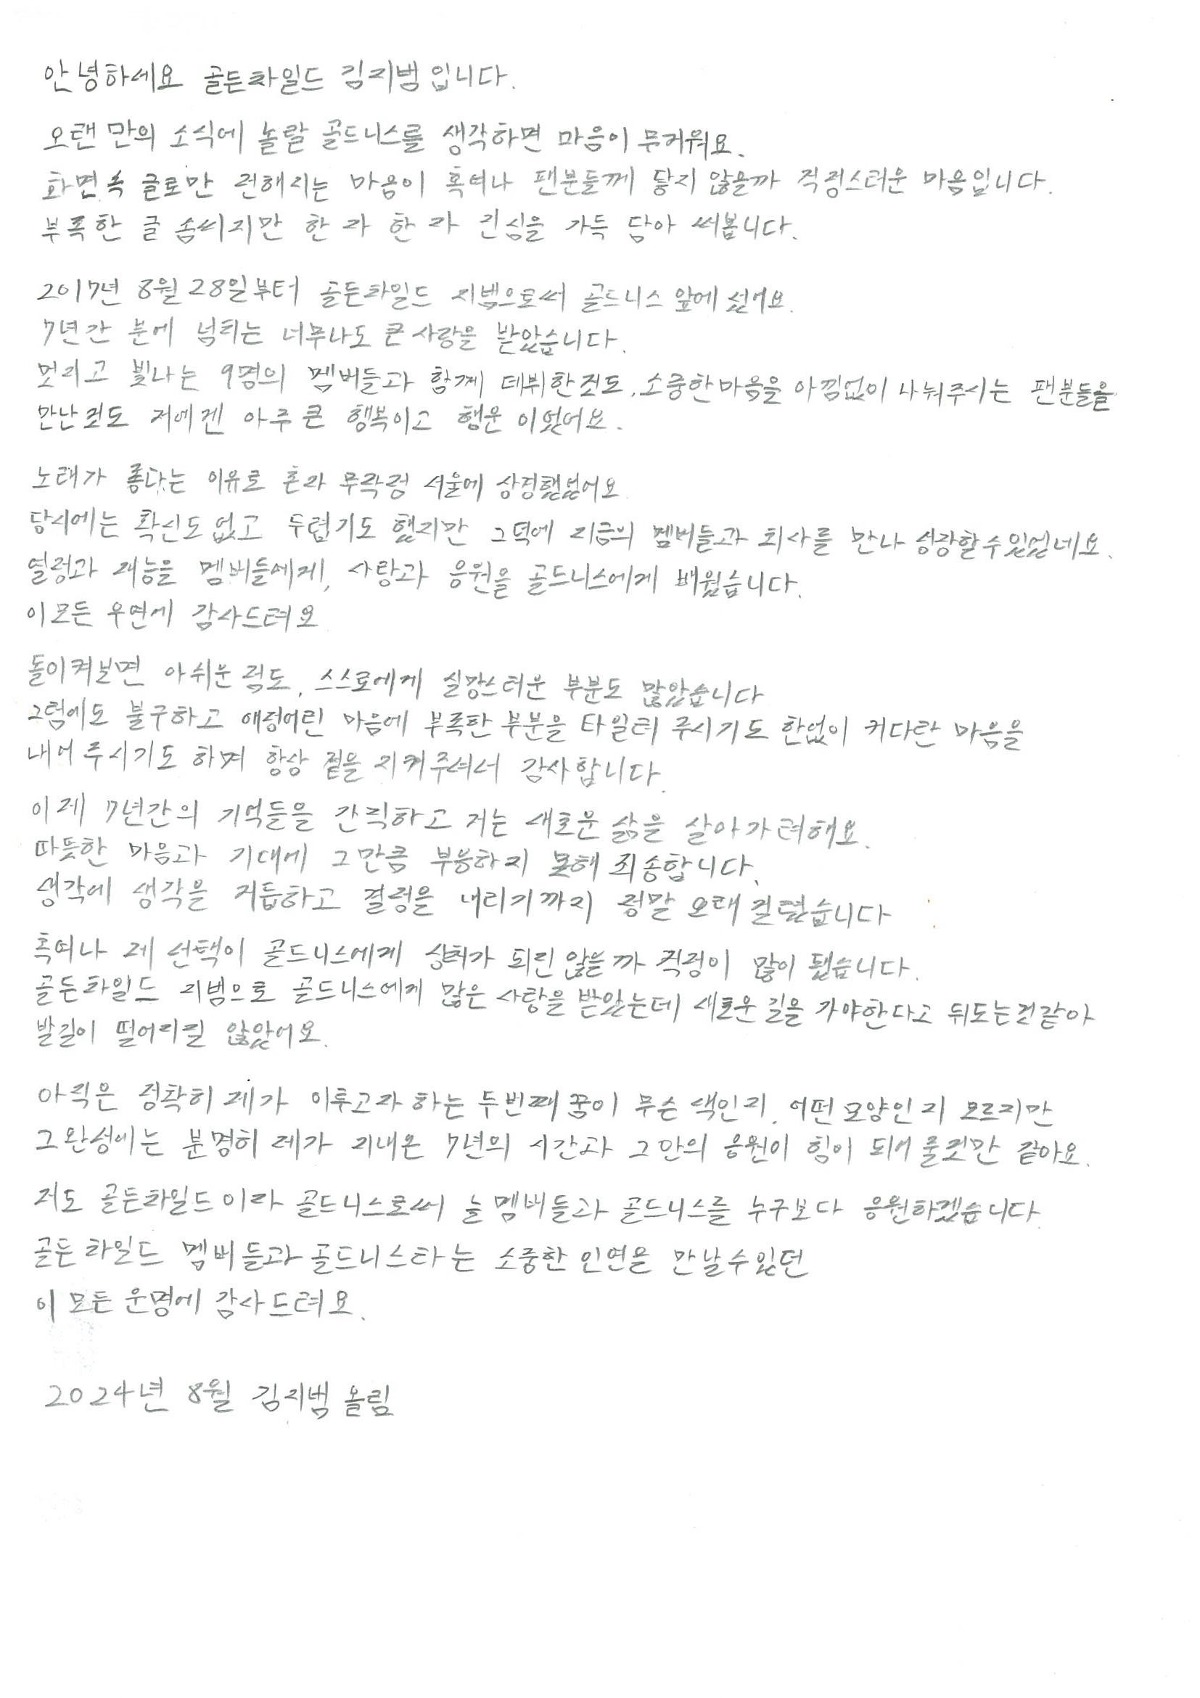 안녕하세요 골든차일드 김지범입니다.
오랜 만의 소식에 놀랄 골드니스를 생각하면 마음이 무거워요.
화면속 글로만 전해지는 마음이 혹여나 팬분들께 닿지 않을까 걱정스러운 마음입니다.
부족한 글 솜씨지만 한 자 한 자 진심을 가득 담아 써봅니다.
2017년 8월 28일부터 골든차일드 지범으로써 골드니스 앞에 섰어요.
7년간 분에 넘치는 너무나도 큰 사랑을 받았습니다.
멋지고 빛나는 9명의 멤버들과 함께 데뷔한것도, 소중한마음을 아낌없이 나눠주시는 팬분들을
만난것도 저에겐 아주 큰 행복이고 행운 이었어요.
노래가 좋다는 이유로 혼자 무작정 서울에 상경했었어요
당시에는 확신도 없고 두렵기도 했지만 그덕에 지금의 멤버들과 회사를 만나 성장할수있었네요.
열정과 재능을 멤버들에게, 사랑과 응원을 골드니스에게 배웠습니다.
이모든 우연에 감사드려요
돌이켜보면 아쉬운 점도, 스스로에게 실망스러운 부분도 많았습니다
그럼에도 불구하고 애정어린 마음에 부족한 부분을 타일러 주시기도 한없이 커다란 마음을
내어 주시기도 하며 항상 곁을 지켜주셔서 감사합니다.
이제 7년간의 기억들을 간직하고 저는 새로운 삶을 살아가려해요.
따뜻한 마음과 기대에 그만큼 부응하지 못해 죄송합니다.
생각에 생각을 거듭하고 결정을 내리기까지 정말 오래 걸렸습니다
혹여나 제 선택이 골드니스에게 상처가 되진 않을까 걱정이 많이 됐습니다.
골든차일드 지범으로 골드니스에게 많은 사랑을 받았는데 새로운 길을 가야한다고 뒤도는것같아
발길이 떨어지질 않았어요.
아직은 정확히 제가 이루고자 하는 두번째 꿈이 무슨 색인지, 어떤 모양인지 모르지만
그 완성에는 분명히 제가 지내온 7년의 시간과 그 안의 응원이 힘이 되어 줄것만 같아요.
저도 골든차일드이자 골드니스로써 늘 멤버들과 골드니스를 누구보다 응원하겠습니다.
골든 차일드 멤버들과 골드니스라는 소중한 인연을 만날수있던
이 모든 운명에 감사드려요.
2024년 8월 김지범 올림